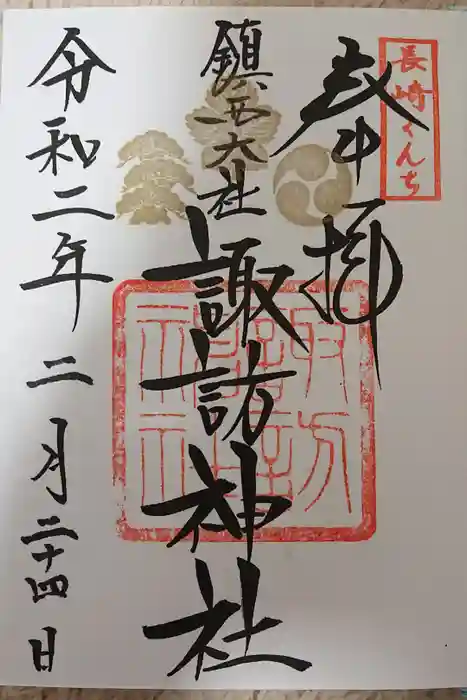 長崎くんち
奉拝
鎮西大社
諏訪神社
令和二年二月二十四日